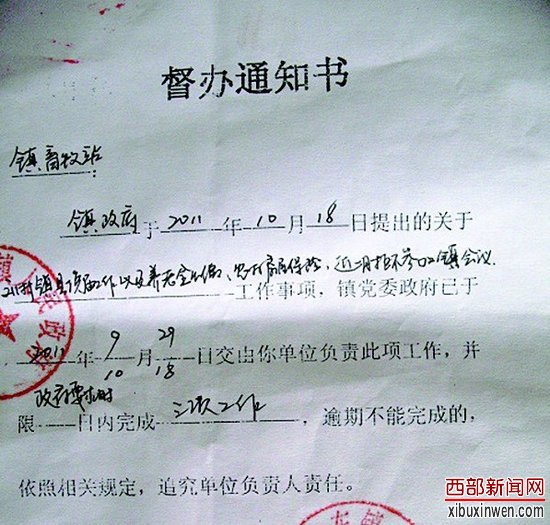 督办通知书
镇畜牧站:
镇政府于2011年10月18日提出的关于
镇 工作以及养老金 、农村 保险，近 拒不参加镇会议
工作事项，镇党委政府已于
2011年9月29日交由你单位负责此项工作，并
10 18
政府要求时
限 日内完成三项工作，逾期不能完成的，
依照相关规定，追究单位负责人责任。
西部新闻网
xibuxinwen.com